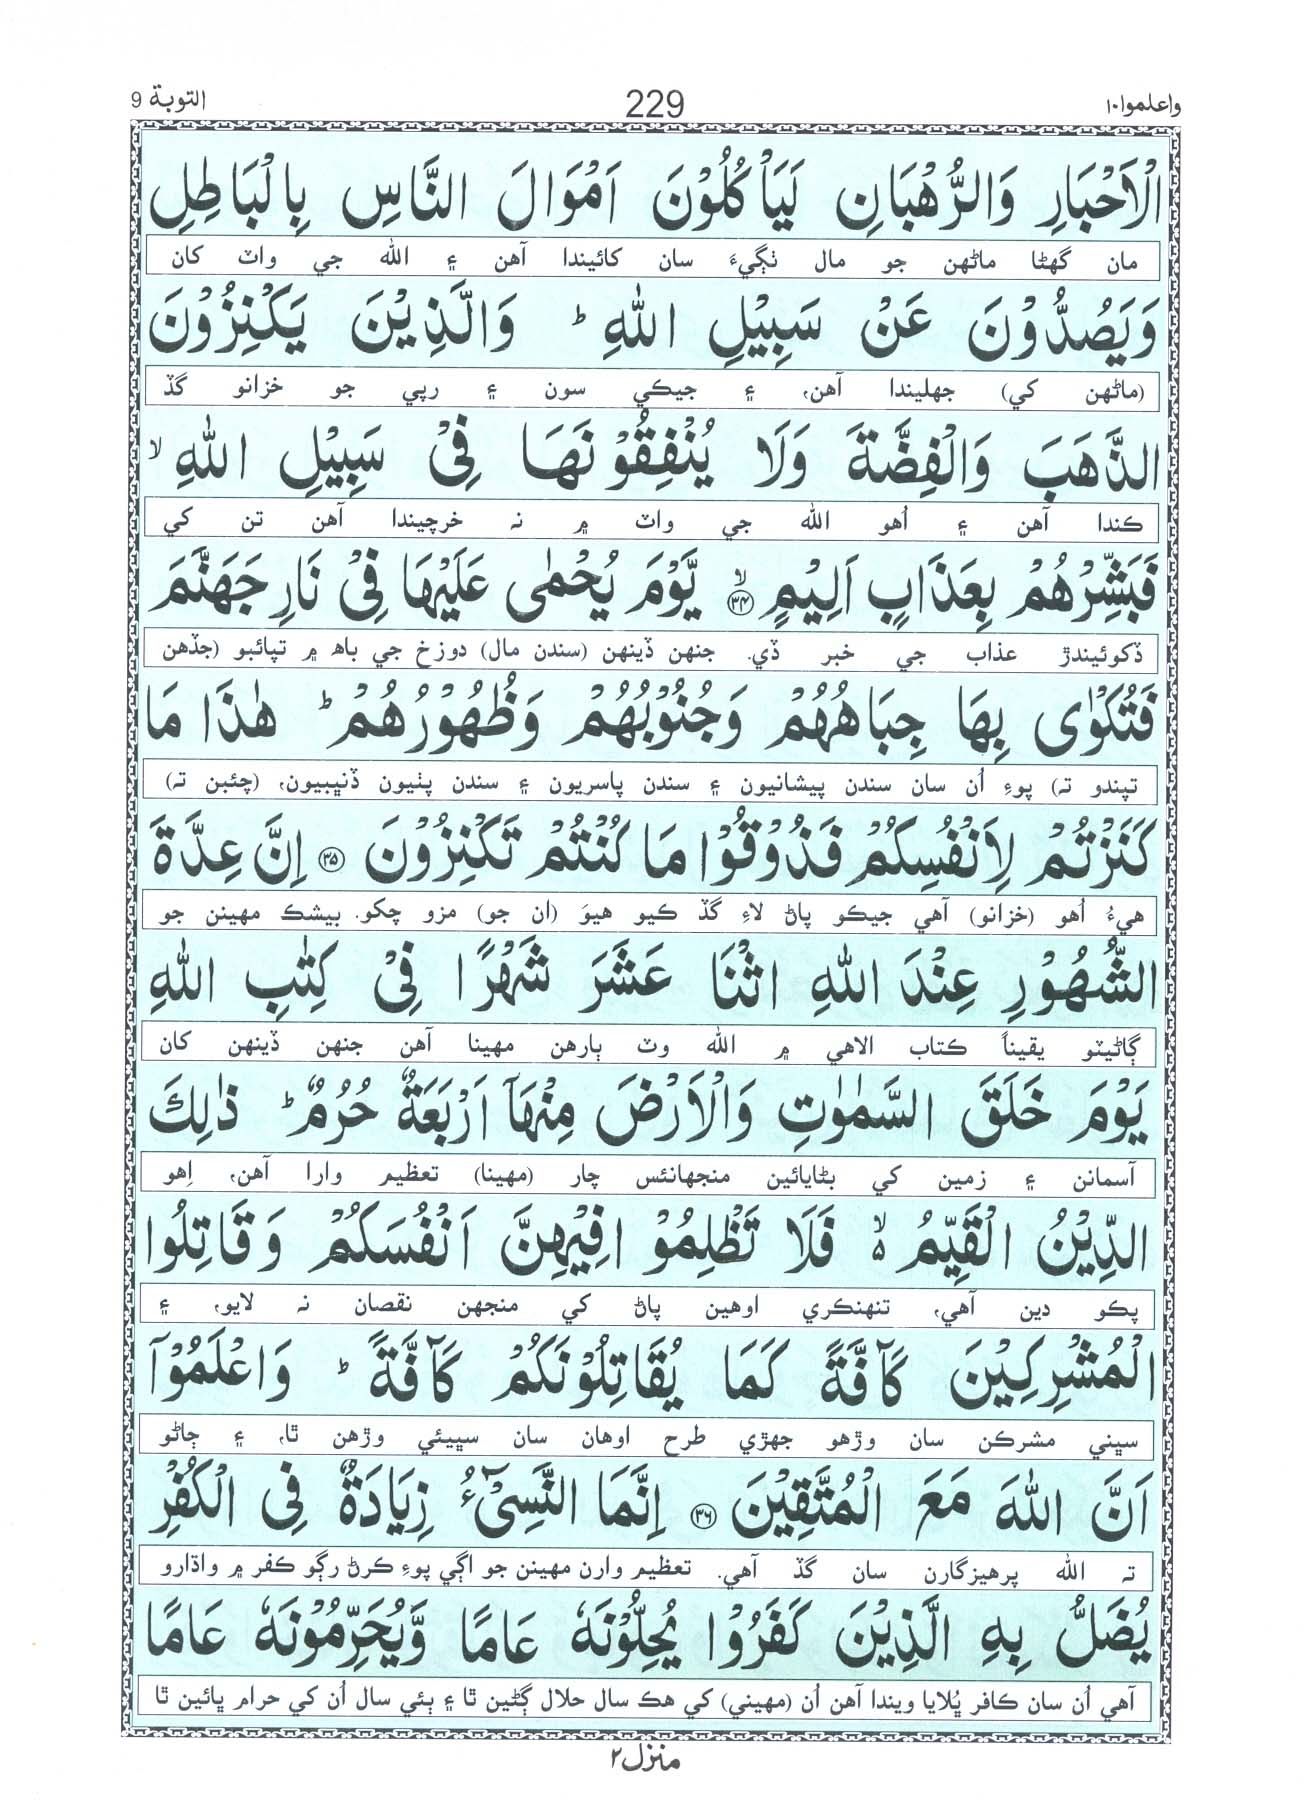 واعلموا١٠
229
التوبة 9
الْاَحْبَارِ وَالرُّهْبَانِ لَيَاْكُلُوْنَ اَمْوَالَ النَّاسِ بِالْبَاطِلِ
مان گھڻا ماڻهن جو مال ٺڳيءَ سان کائيندا آهن ۽ الله جي واٽ کان
وَيَصُدُّوْنَ عَنْ سَبِيْلِ اللّٰهِ ؕ وَالَّذِيْنَ يَكْنِزُوْنَ
(ماڻهن کي) جهليندا آهن، ۽ جيڪي سون ۽ رپي جو خزانو گڏ
الذَّهَبَ وَالْفِضَّةَ وَلَا يُنْفِقُوْنَهَا فِىْ سَبِيْلِ اللّٰهِ ۙ
ڪندا آهن ۽ اُهو الله جي واٽ ۾ نہ خرچيندا آهن تن کي
فَبَشِّرْهُمْ بِعَذَابٍ اَلِيْمٍ ۙ﴿۳۴﴾ يَّوْمَ يُحْمٰى عَلَيْهَا فِىْ نَارِ جَهَنَّمَ
ڏکوئيندڙ عذاب جي خبر ڏي. جنهن ڏينهن (سندن مال) دوزخ جي باھ ۾ تپائبو (جڏهن
فَتُكْوٰى بِهَا جِبَاهُهُمْ وَجُنُوْبُهُمْ وَظُهُوْرُهُمْ ؕ هٰذَا مَا
تپندو تہ) پوءِ اُن سان سندن پيشانيون ۽ سندن پاسريون ۽ سندن پٺيون ڏنڀبيون، (چئبن تہ)
كَنَزْتُمْ لِاَنْفُسِكُمْ فَذُوْقُوْا مَا كُنْتُمْ تَكْنِزُوْنَ ﴿۳۵﴾ اِنَّ عِدَّةَ
هيءُ اُهو (خزانو) آهي جيڪو پاڻ لاءِ گڏ ڪيو هيوَ (ان جو) مزو چکو. بيشڪ مهينن جو
الشُّهُوْرِ عِنْدَ اللّٰهِ اثْنَا عَشَرَ شَهْرًا فِىْ كِتٰبِ اللّٰهِ
ڳاڻيٽو يقيناً ڪتاب الاهي ۾ الله وٽ ٻارهن مهينا آهن جنهن ڏينهن کان
يَوْمَ خَلَقَ السَّمٰوٰتِ وَالْاَرْضَ مِنْهَاۤ اَرْبَعَةٌ حُرُمٌ ؕ ذٰلِكَ
آسمانن ۽ زمين کي بڻايائين منجهانئس چار (مهينا) تعظيم وارا آهن، اِهو
الدِّيْنُ الْقَيِّمُ ۙ فَلَا تَظْلِمُوْا فِيْهِنَّ اَنْفُسَكُمْ وَقَاتِلُوا
پڪو دين آهي، تنهنڪري اوهين پاڻ کي منجهن نقصان نہ لايو، ۽
الْمُشْرِكِيْنَ كَآفَّةً كَمَا يُقَاتِلُوْنَكُمْ كَآفَّةً ؕ وَاعْلَمُوْۤا
سڀني مشرڪن سان وڙهو جهڙي طرح اوهان سان سڀيئي وڙهن ٿا، ۽ ڄاڻو
اَنَّ اللّٰهَ مَعَ الْمُتَّقِيْنَ ﴿۳۶﴾ اِنَّمَا النَّسِىْٓءُ زِيَادَةٌ فِى الْكُفْرِ
تہ الله پرهيزگارن سان گڏ آهي. تعظيم وارن مهينن جو اڳي پوءِ ڪرڻ رڳو ڪفر ۾ واڌارو
يُضَلُّ بِهِ الَّذِيْنَ كَفَرُوْا يُحِلُّوْنَهٗ عَامًا وَّيُحَرِّمُوْنَهٗ عَامًا
آهي اُن سان ڪافر ڀُلايا ويندا آهن اُن (مهيني) کي هڪ سال حلال ڳڻين ٿا ۽ ٻئي سال اُن کي حرام ڀائين ٿا
منزل۲